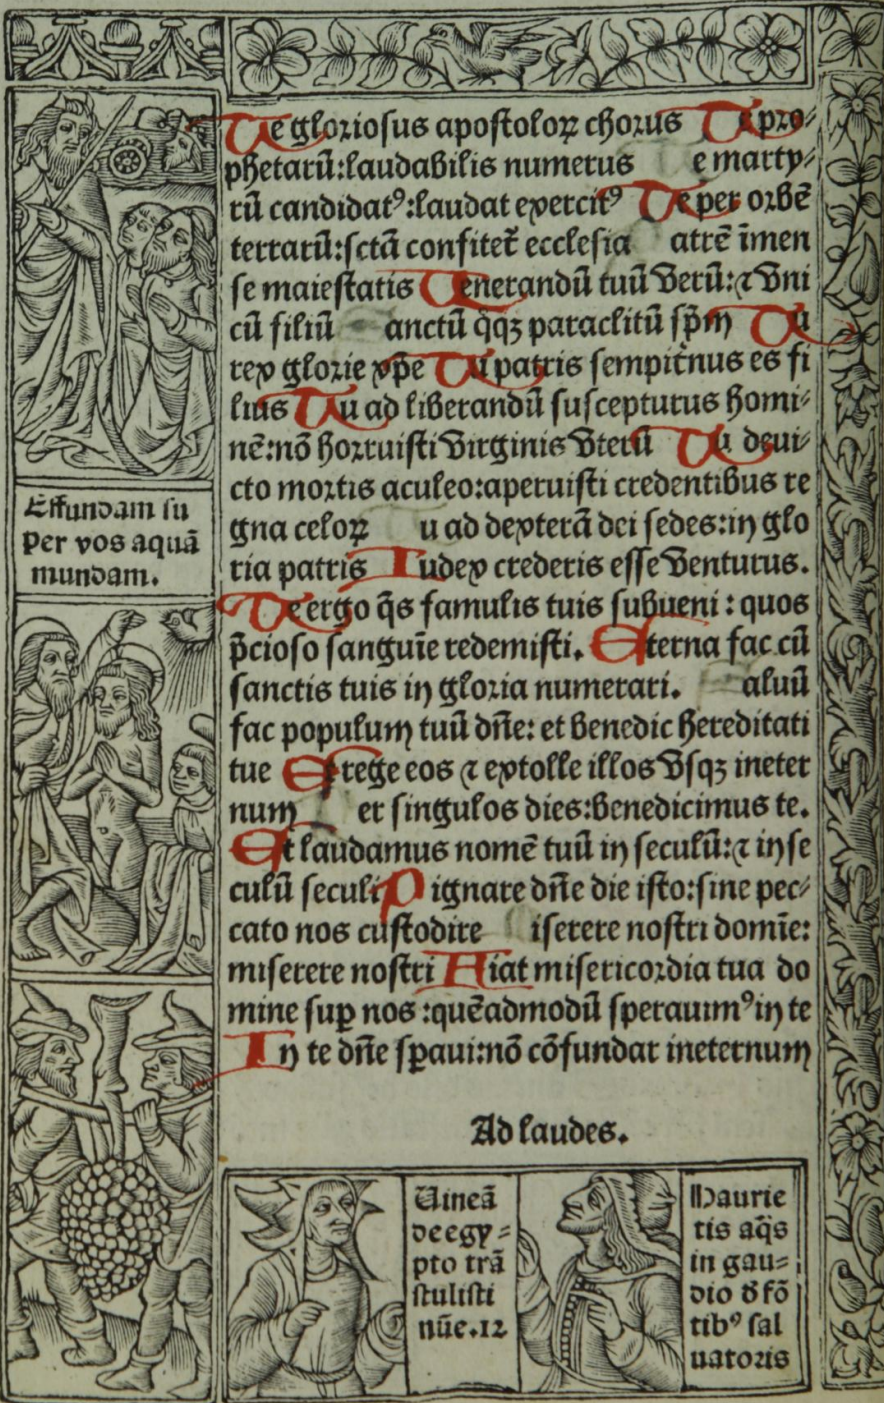 Te gloriosus apostoloꝝ chorus Te pro⸗
phetarū:laudabilis numerus e marty⸗
rū candidatꝰ:laudat exercitꝰ Te per orbē
terrarū:sctā confitet᷑ ecclesia atrē īmen
se maiestatis Venerandū tuū verū:⁊ vni
cū filiū anctū q̄qꝫ paraclitū sp̄m Tu
rex glorie xp̄e Tu patris sempit̄nus es fi
lius Tu ad liberandū suscepturus homi⸗
nē:nō horruisti virginis vterū Tu deui⸗
cto mortis aculeo:aperuisti credentibus re
gna celoꝝ u ad dexterā dei sedes:in glo
ria patris Iudex crederis esse venturus.
Te ergo q̄s famulis tuis subueni : quos
p̄cioso sanguīe redemisti. Eterna fac cū
sanctis tuis in gloria numerari. aluū
fac populum tuū dn̄e: et benedic hereditati
tue Et rege eos ⁊ extolle illos vsqꝫ ineter
num er singulos dies:benedicimus te.
Et laudamus nomē tuū in seculū:⁊ in se
culū seculi Dignare dn̄e die isto:sine pec⸗
cato nos custodire iserere nostri domīe:
miserere nostri Fiat misericordia tua do
mine suꝑ nos :quēadmodū sperauimꝰ in te
In te dn̄e sꝑaui:nō cōfundar ineternum
Ad laudes.
Effundam su
per vos aquā
mundam.
Uineā
de egy⸗
pto trā
stulisti
nūe.12
Haurie
tis aq̄s
in gau⸗
dio d̄ fō
tibꝰ sal
uatoris